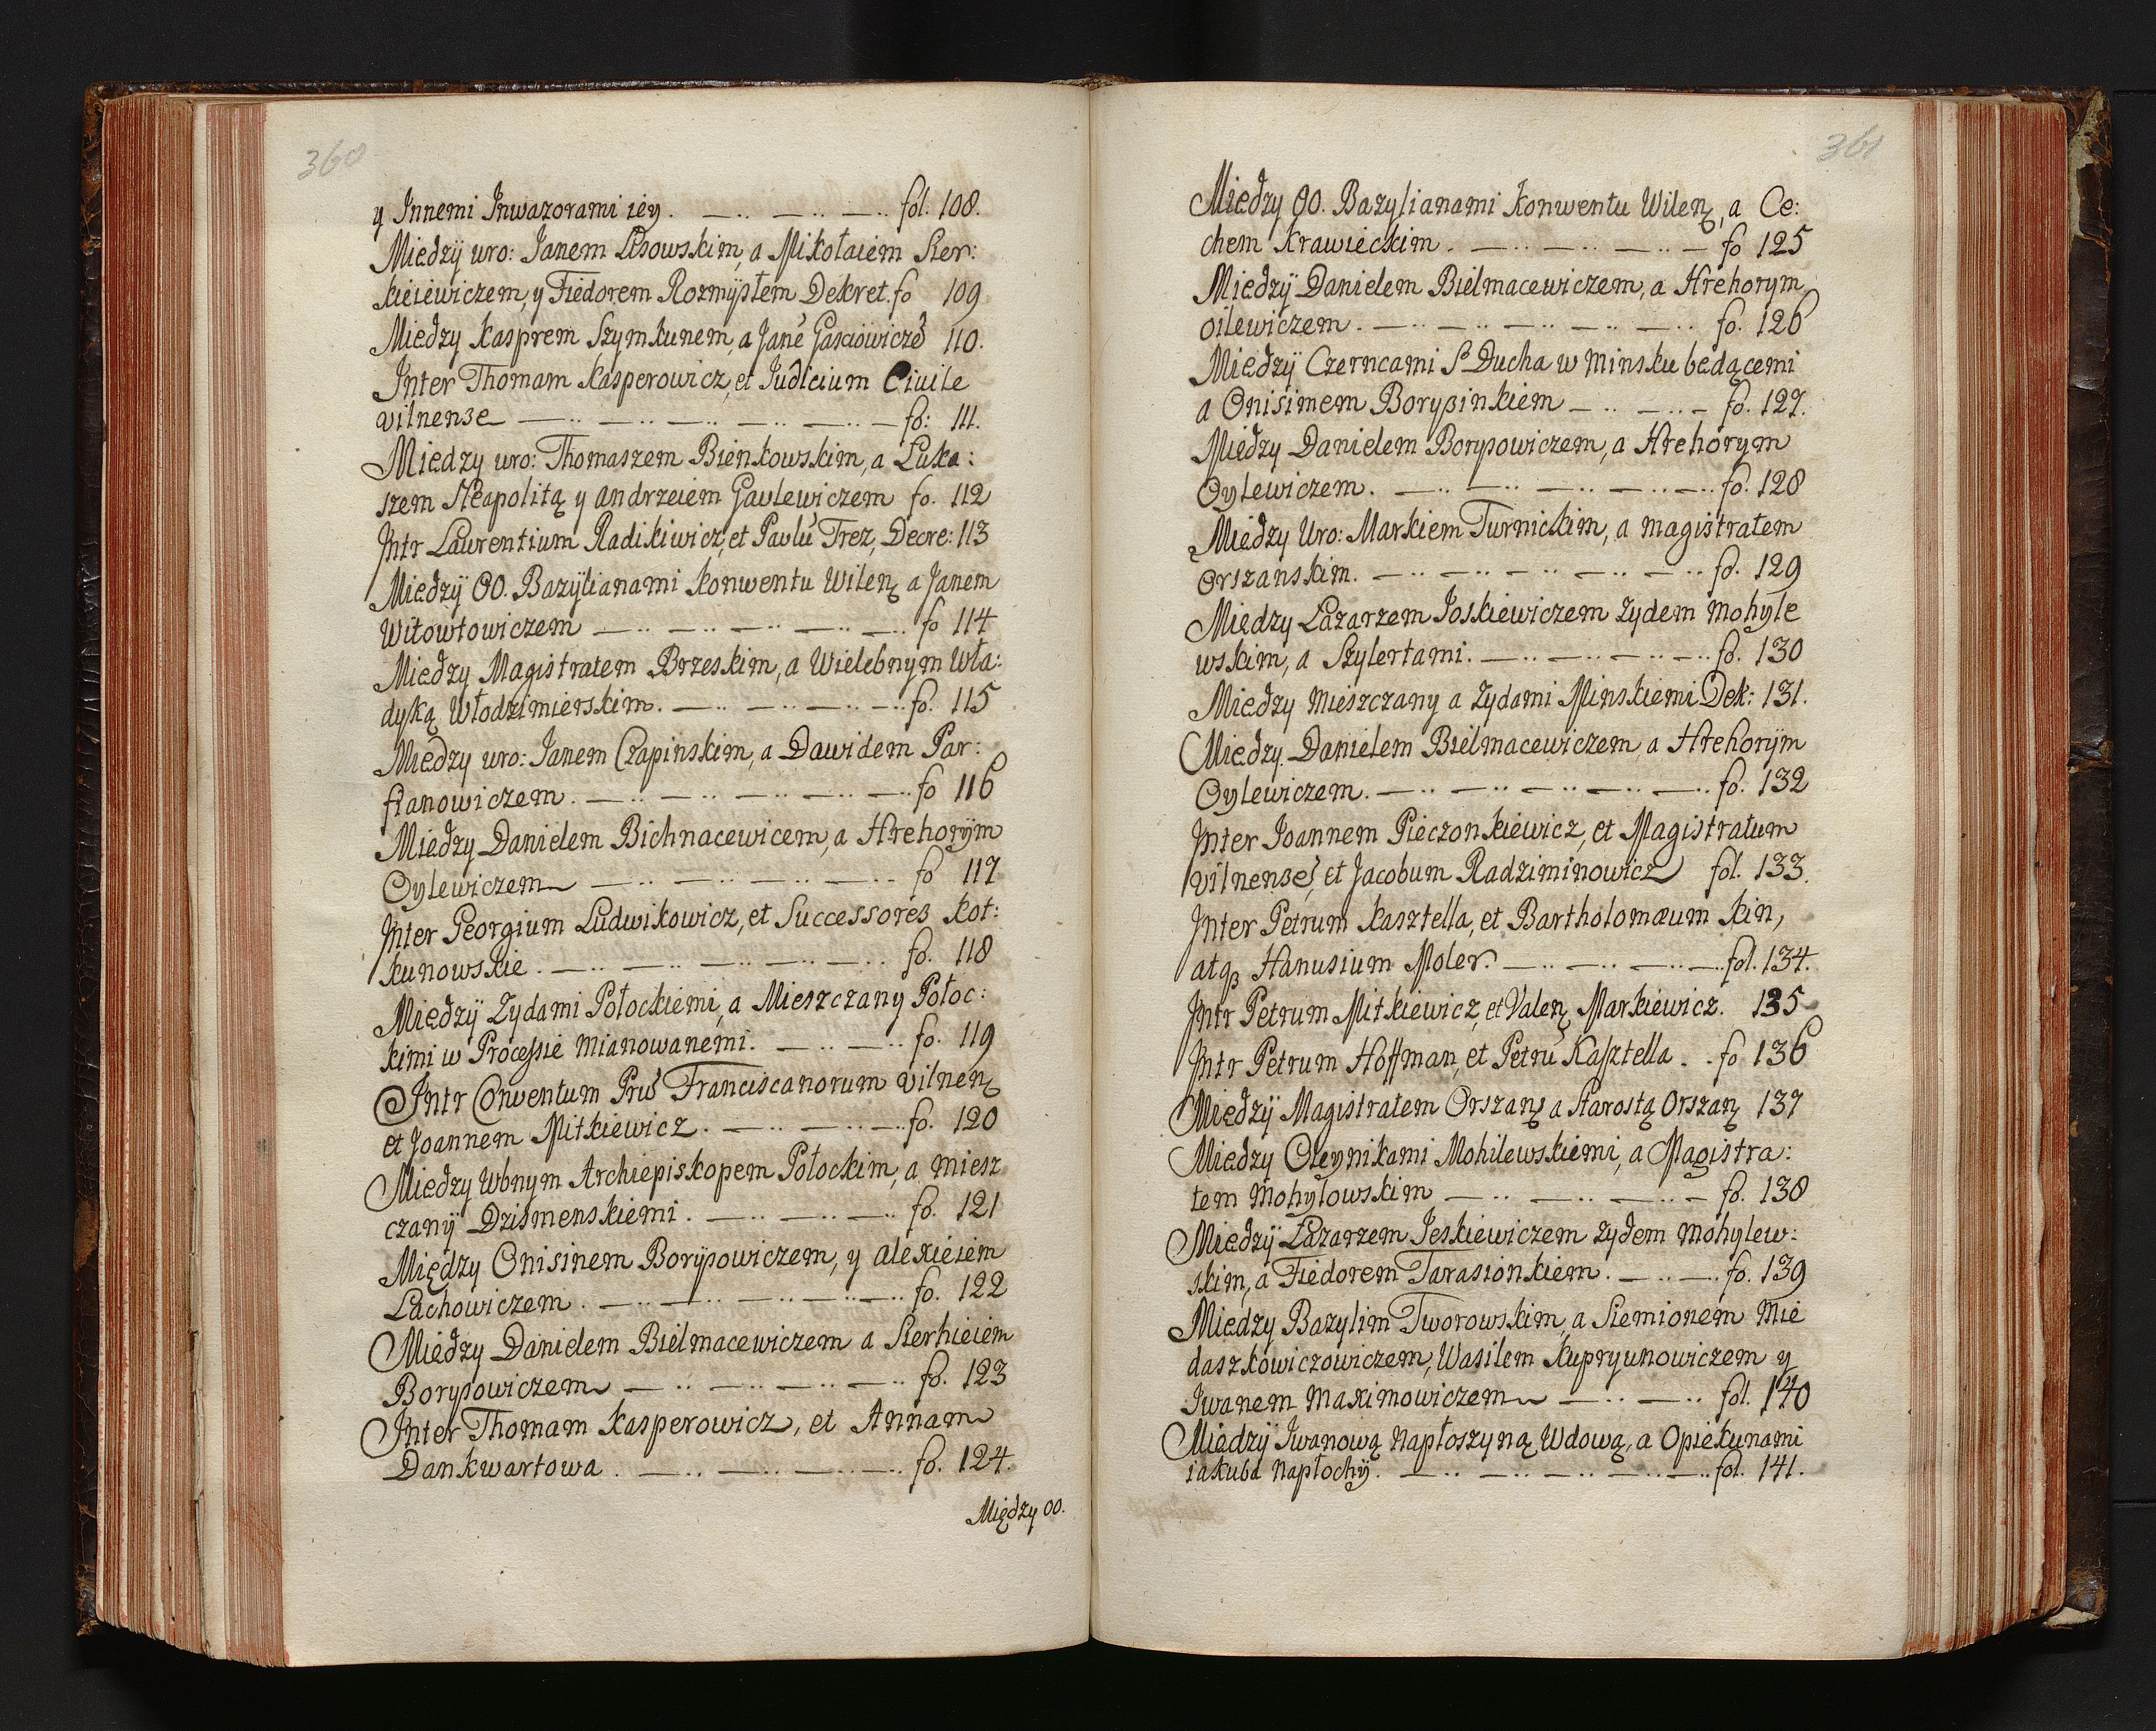 360
y Innemi Inwazorami iey. — .. — .. — .. fol. 108.
Między uro: Janem Lisowskim, a Mikołaiem Ster:
kieiewiczem, y Fiedorem Rozmysłem Dekret. fo 109
Między Kasprem Szymkunem, a Janē Gasciowiczē 110.
Inter Thomam Kasperowicz, et Judicium Ciuile
vilnense — .. — .. — .. — .. — .. — fo: 111.
Miedzy uro: Thomaszem Bienkowskim, a Luka:
szem Neapolitą y andrzeiem Gavlewiczem fo. 112
Intr Laurentium Radikiwicz, et Pavlū Frez, Decre: 113
Między OO. Bazylianami Konwentu Wilenʒ a Janem
Witowtowiczem — .. — .. — .. — .. — .. fo 114
Między Magistratem Brzeskim, a Wielebnym Wła:
dyką Włodzimierskim. — .. — .. — .. — .. fo. 115
Między uro: Janem Czapinskim, a Dawidem Par:
fianowiczem. — .. — .. — .. — .. — .. fo 116
Między Danielem Bichnacewicem, a Hrehorym
Oylewiczem — .. — .. — .. — .. fo 117
Inter Georgium Ludwikowicz, et Successores Kot:
kunowskie. — .. — .. — .. — .. — .. fo. 118
Między Zydami Połockiemi, a Mieszczany Połoc:
kimi w Processie mianowanemi. — .. — .. fo. 119
Intr Conventum Prū Franciscanorum vilnenʒ
et Joannem Mitkiewicz. — .. — .. — .. fo. 120
Między Wbnym Archiepiskopem Połockim, a miesz
czany Dzismenskiemi. — .. — .. — .. fo. 121
Między Onisinem Borysowiczem, y alexieiem
Lachowiczem. — .. — .. — .. — .. — .. fo. 122
Między Danielem Bielmacewiczem a Sierhieiem
Borysowiczem — .. — .. — .. — .. fo. 123
Inter Thomam Kasperowicz, et Annam
Dankwartowa. — .. — .. — .. — .. fo. 124.
Między OO.
361
Między OO. Bazylianami Konwentu Wilenʒ, a Ce:
chem Krawieckim. — .. — .. — .. — fo 125
Między Danielem Bielmacewiczem, a Hrehorym
Oilewiczem. — .. — .. — .. — .. — .. fo. 126
Między Czerncami S Ducha w Minsku będącemi
a Onisimem Borysinkiem — .. — .. — fo. 127.
Między Danielem Borysowiczem, a Hrehorym
Oylewiczem. — .. — .. — .. — .. fo. 128
Między Uro: Markiem Turnickim, a magistratem
Orszanskim. — .. — .. — .. — .. — .. fo. 129
Między Łazarzem Joskiewiczem Zydem Mohyle
wskim, a Szylertami. — .. — .. — .. fo. 130
Między mieszczany a Zydami Minskiemi Dek: 131.
Między Danielem Bielmacewiczem, a Hrehorym
Oylewiczem. — .. — .. — .. — .. — .. fo. 132
Inter Joannem Pieczonkiewicz, et Magistratum
vilnense, et Jacobum Radziminowicz fol. 133.
Inter Petrum Kasztella, et Bartholomæum Kin,
atqꝫ Hanusium Moler. — .. — .. — .. fol. 134.
Intr Petrum Mitkiewicz, et Valenʒ Markiewicz. 135
Intr Petrum Hoffman, et Petrū Kasztella . . fo 136
Między Magistratem Orszanʒ a Starostą Orszanʒ 137
Między Oleynikami Mohilewskiemi, a Magistra:
tem Mohyłowskim — .. — .. — .. — fo. 138
Między Łazarzem Jeskiewiczem zydem Mohylew:
skim, a Fiedorem Tarasionkiem. — .. — . fo. 139
Między Bazylim Tworowskim, a Siemionem Mie
daszkowiczowiczem, Wasilem Kupryunowiczem y
Iwanem Maximowiczem — .. — .. fol. 140
Między Iwanową Napłoszyną, Wdową, a Opiekunami
iakuba Napłochy. — .. — .. — .. — .. fol. 141.